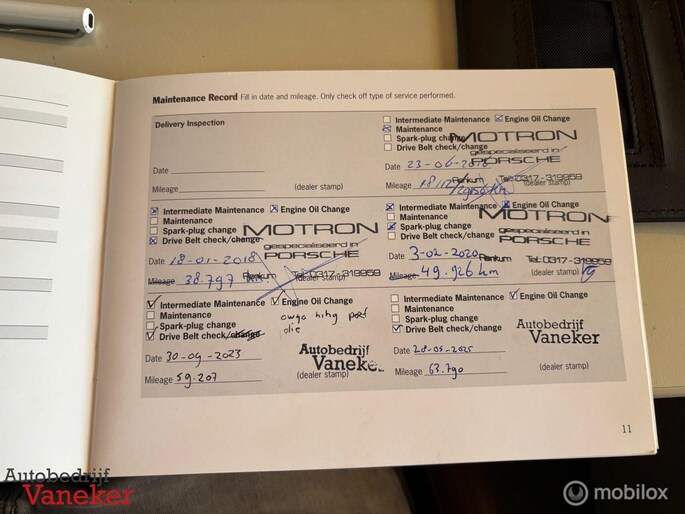 Maintenance Record Fill in date and mileage. Only check off type of service performed.
Delivery Inspection
Date
Mileage
(dealer stamp)
Intermediate Maintenance Engine Oil Change
Maintenance
Spark-plug change
Drive Belt check/change
MOTRON
gespecialiseerd in
PORSCHE
Renkum Tel: 0317-319959
Date 23-06-
Mileage
(dealer stamp)
Intermediate Maintenance Engine Oil Change
Maintenance
Spark-plug change
Drive Belt check/change
MOTRON
gespecialiseerd in
PORSCHE
Renkum Tel: 0317-319959
Date 18-01-2018
Mileage 38.797
(dealer stamp)
Intermediate Maintenance Engine Oil Change
Maintenance
Spark-plug change
Drive Belt check/change
MOTRON
gespecialiseerd in
PORSCHE
Renkum Tel: 0317-319959
Date 3-02-2020
Mileage 49.926 km
(dealer stamp)
Intermediate Maintenance Engine Oil Change
Maintenance
Spark-plug change
Drive Belt check/change
olie
Autobedrijf
Vaneker
Date 30-09-2023
Mileage 59.207
(dealer stamp)
Intermediate Maintenance Engine Oil Change
Maintenance
Spark-plug change
Drive Belt check/change
Autobedrijf
Vaneker
Date 28-05-2025
Mileage 63.790
(dealer stamp)
11
Autobedrijf
Vaneker
mobilox